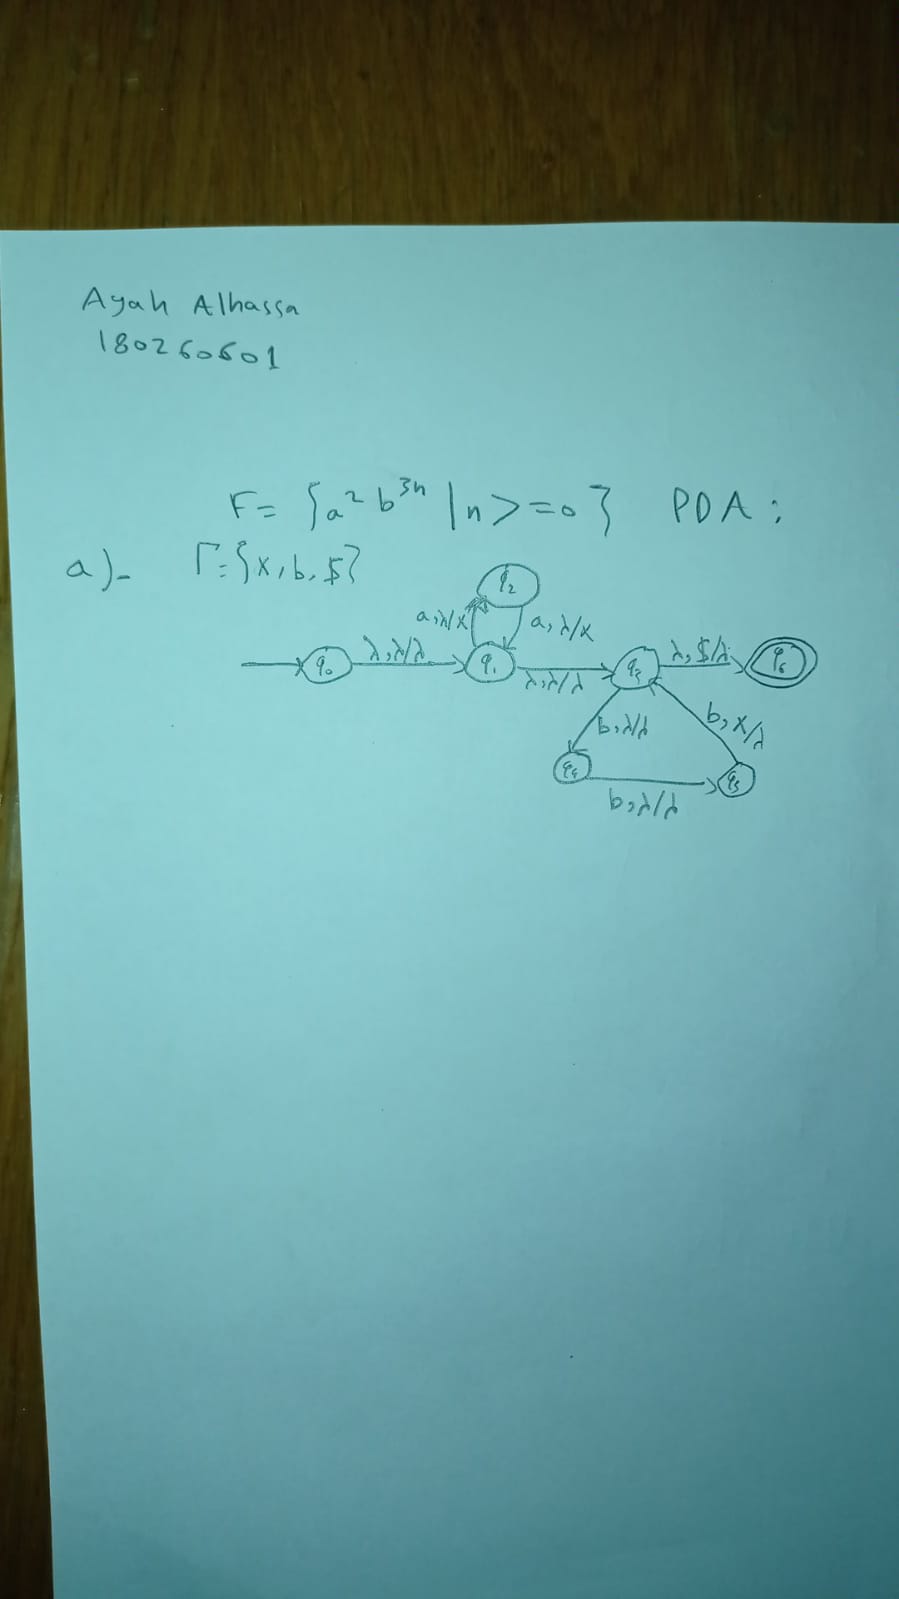 Ayah Alhassa
180260601
F = {a² b³ⁿ | n >= 0} PDA :
a)- Γ = {x, b, $}
q₂
a, λ/x a, λ/x
q₀ λ, λ/λ q₁ λ, λ/λ q₃ λ, $/λ q₆
b, λ/λ b, x/λ
q₄ b, λ/λ q₅